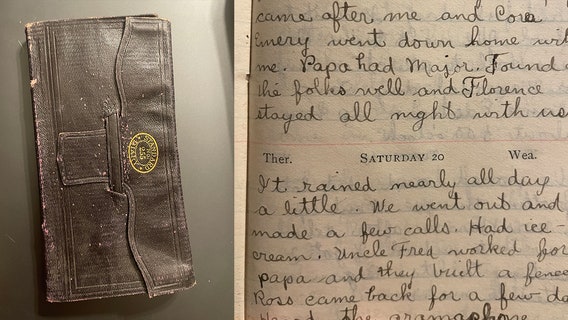 STANDARD
DIARY
came after me and Cora
Emery went down home wit
me. Papa had Major. Found
the folks well and Florence
stayed all night with us
Ther. SATURDAY 20 Wea.
It rained nearly all day
a little. We went out and
made a few calls. Had ice-
cream. Uncle Fred worked for
papa and they built a fence
Ross came back for a few da
the gramaphone